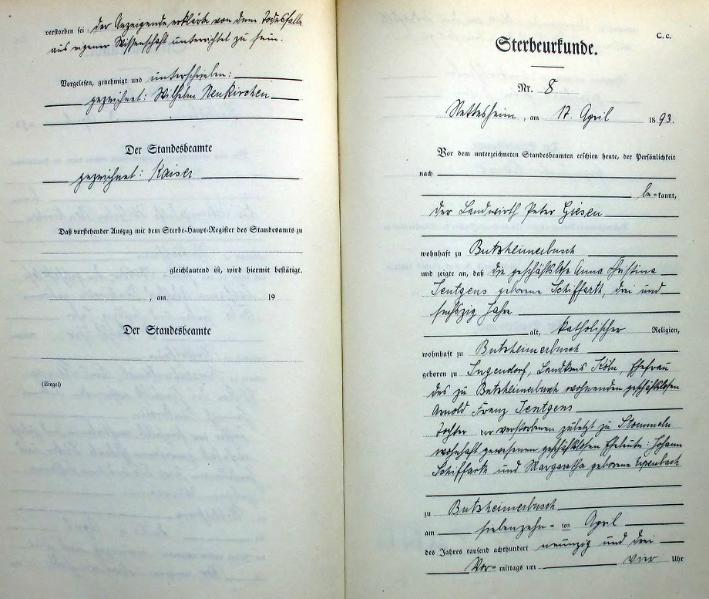 verstorben sei der Anzeigende erklärte von dem Todesfalle
aus eigener Wissenschaft unterrichtet zu sein.
Vorgelesen, genehmigt und unterschrieben:
gezeichnet: Wilhelm Neukirchen
Der Standesbeamte
gezeichnet: Kaiser
Daß vorstehender Auszug mit dem Sterbe-Haupt-Register des Standesamts zu
gleichlautend ist, wird hiermit bestätigt.
, am 19
Der Standesbeamte
(Siegel)
C. c.
Sterbeurkunde.
Nr. 8
Nettesheim, am 17 April 1893.
Vor dem unterzeichneten Standesbeamten erschien heute, der Persönlichkeit
nach
bekannt,
der Landwirth Peter Giesen
wohnhaft zu Butzheimerbusch
und zeigte an, daß die geschäftslose Anna Christina
Jentgens geborene Schiffarth, drei und
sechszig Jahre
alt, katholischer Religion,
wohnhaft zu Butzheimerbusch
geboren zu Ingendorf, Landkreis Köln Ehefrau
des zu Butzheimerbusch wohnenden geschäftslosen
Arnold Franz Jentgens
Tochter der verstorbenen zuletzt zu Stommeln
wohnhaft gewesenen geschäftslosen Eheleute: Johann
Schiffarth und Margaretha geborene
zu Butzheimerbusch
am siebenzehn-ten April
des Jahres tausend achthundert neunzig und drei
Vor-mittags um vier Uhr